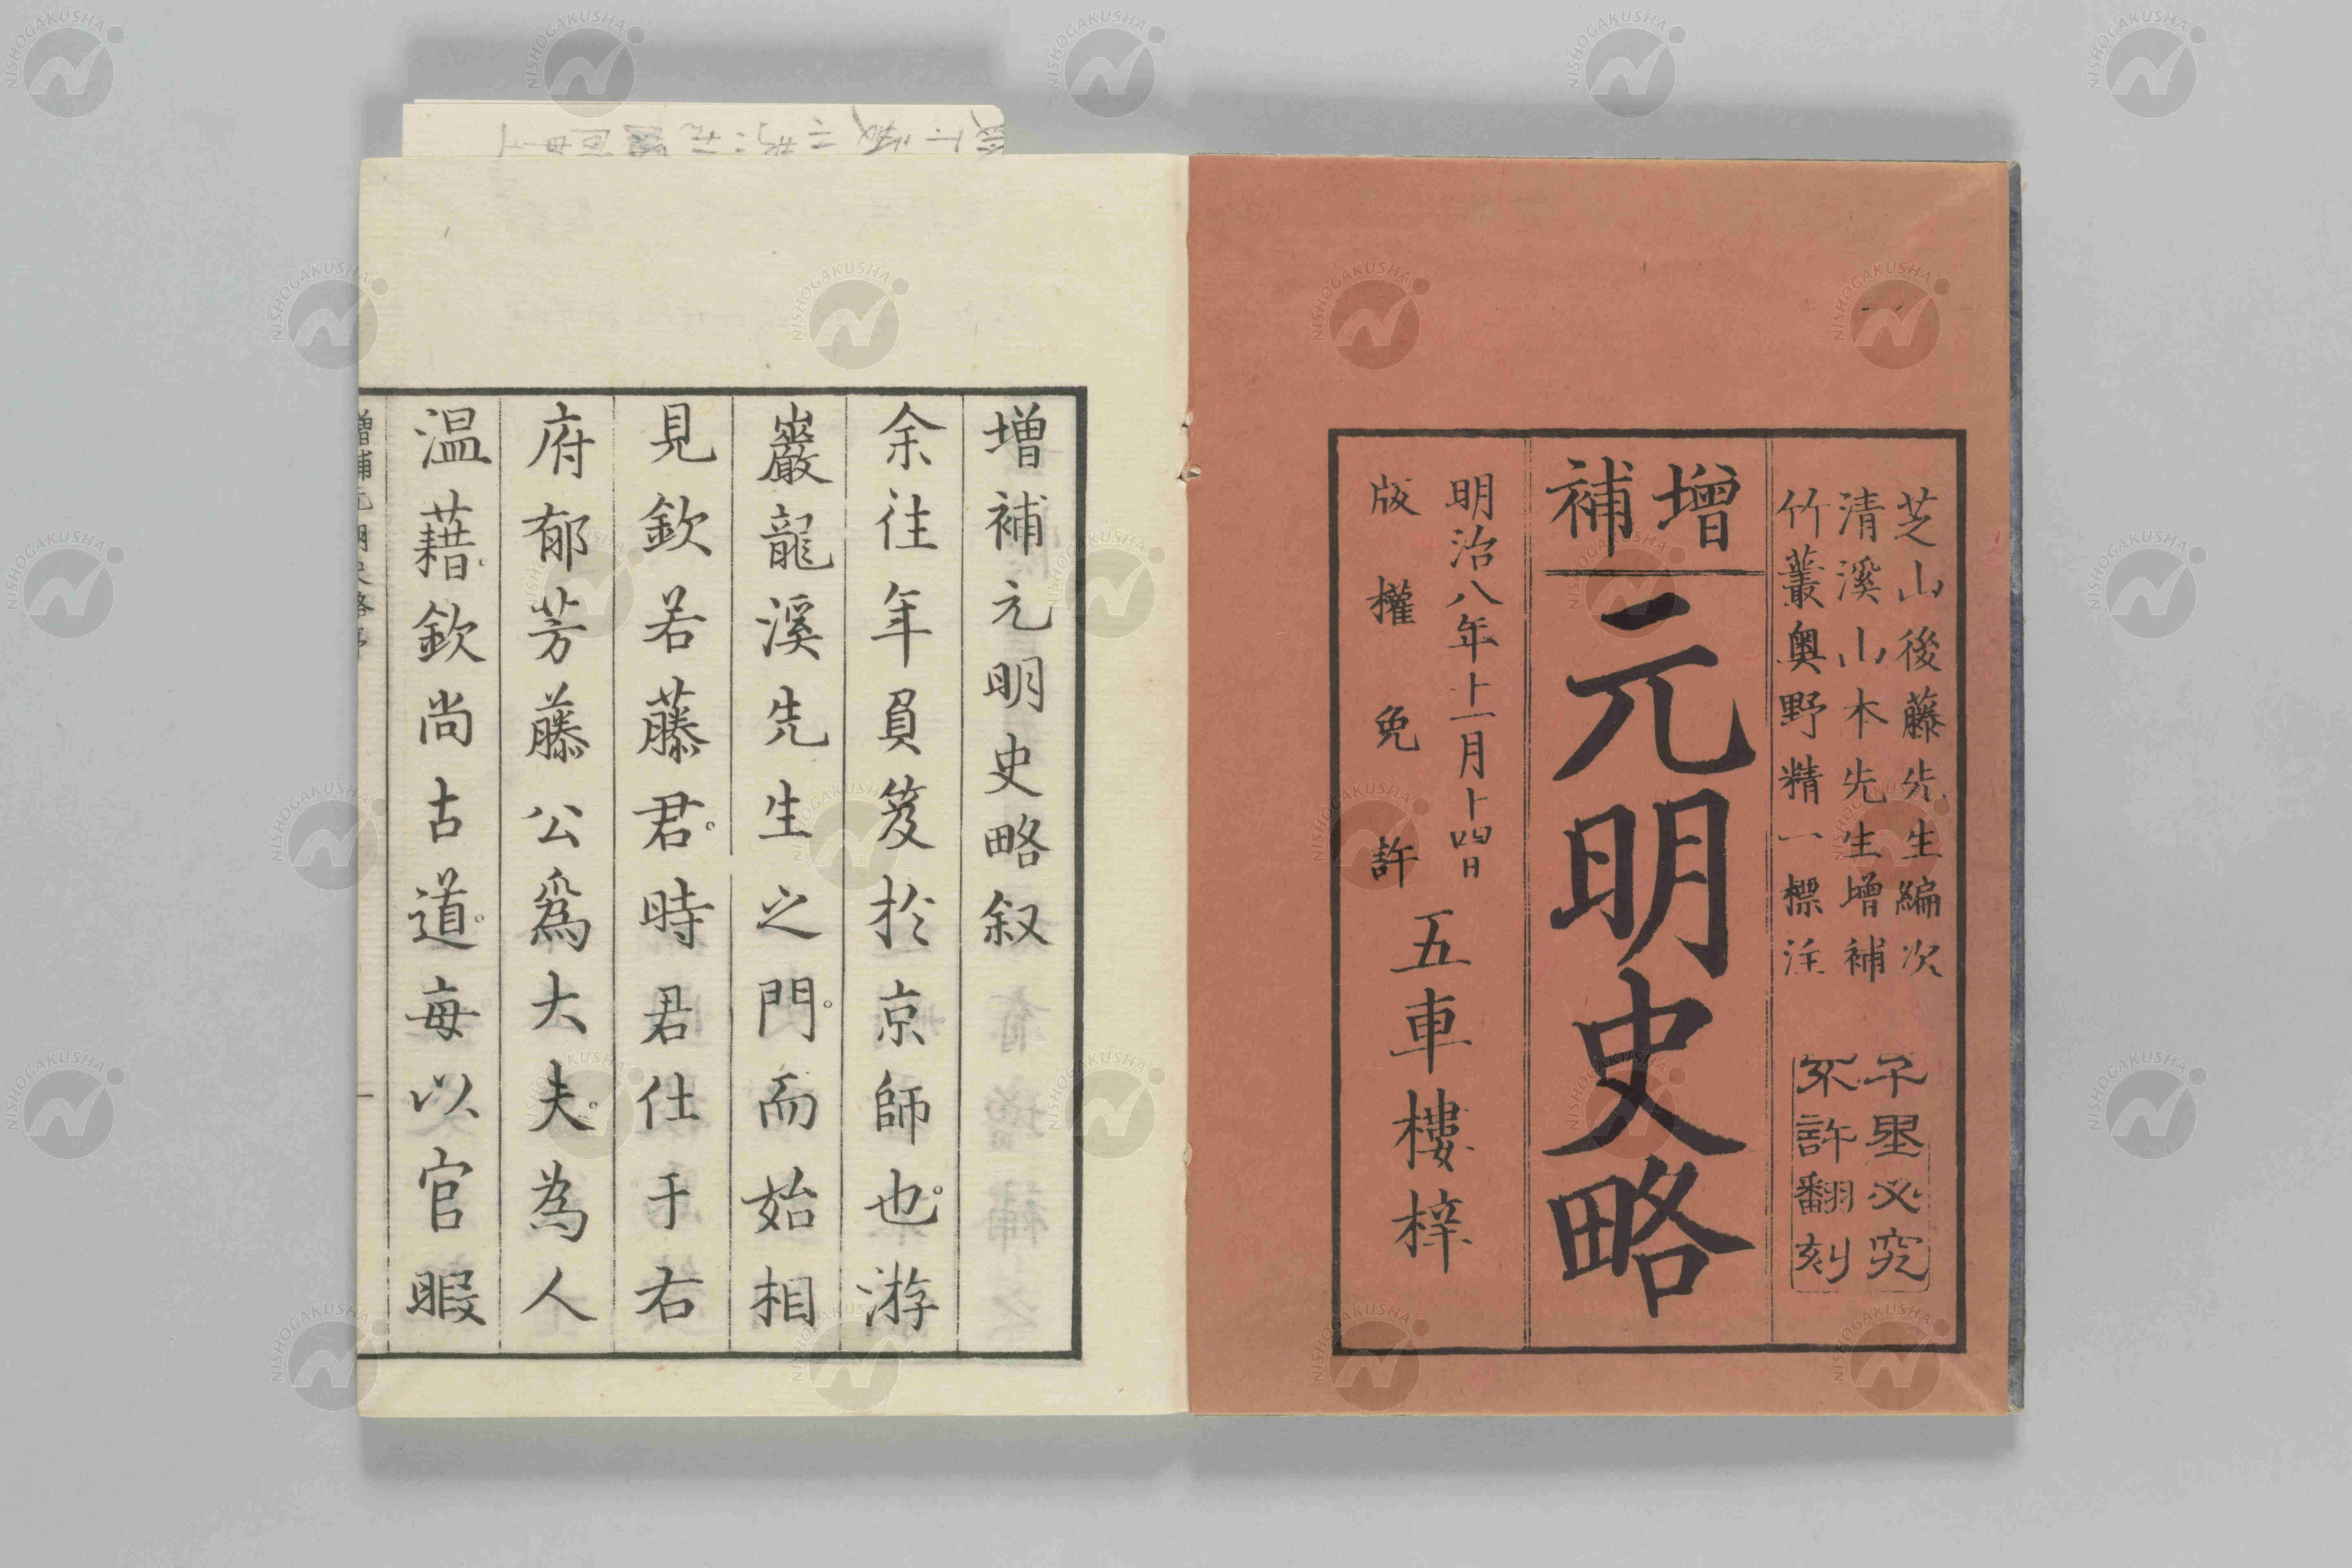 芝山後藤先生編次
清溪山本先生增補
竹叢奥野精一標注
千里必究
不許翻刻
增補
元明史略
明治八年十二月十四日
版權免許
五車樓梓
增補元明史略叙
余往年負笈於京師也。游
巖龍溪先生之門。而始相
見欽若藤君。時君仕于右
府郁芳藤公爲大夫。為人
温藉。欽尚古道。每以官暇
NISHOGAKUSHA